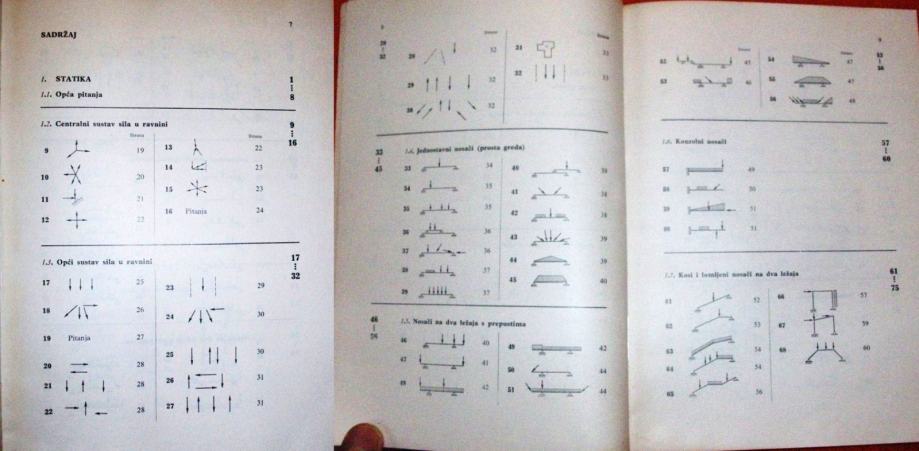 7
SADRŽAJ
1. STATIKA 1
1.1. Opća pitanja 8
1.2. Centralni sustav sila u ravnini 9
16
Strana Strana
9 19 13 22
10 20 14 23
11 21 15 23
12 22 16 Pitanja 24
1.3. Opći sustav sila u ravnini 17
32
17 25 23 29
18 26 24 30
19 Pitanja 27
20 28 25 30
21 28 26 31
22 28 27 31
32
29 32
30 32
31
32 33
1.4. Jednostavni nosači (prosta greda)
33 45
33 34
34 35
35 35
36 36
37 36
38 37
39 37
40
41
42
43 39
44 39
45 40
1.5. Nosači na dva ležaja s prepustima
46
46 40
47 41
48 42
49 42
50 44
51 44
9
52 45
53 46
54 47
55 47
56 48
1.6. Konzolni nosači 57
60
57 49
58 50
59 51
60 51
1.7. Kosi i lomljeni nosači na dva ležaja 61
75
61 52
62 53
63 54
64 54
65 56
66 57
67 59
68 60